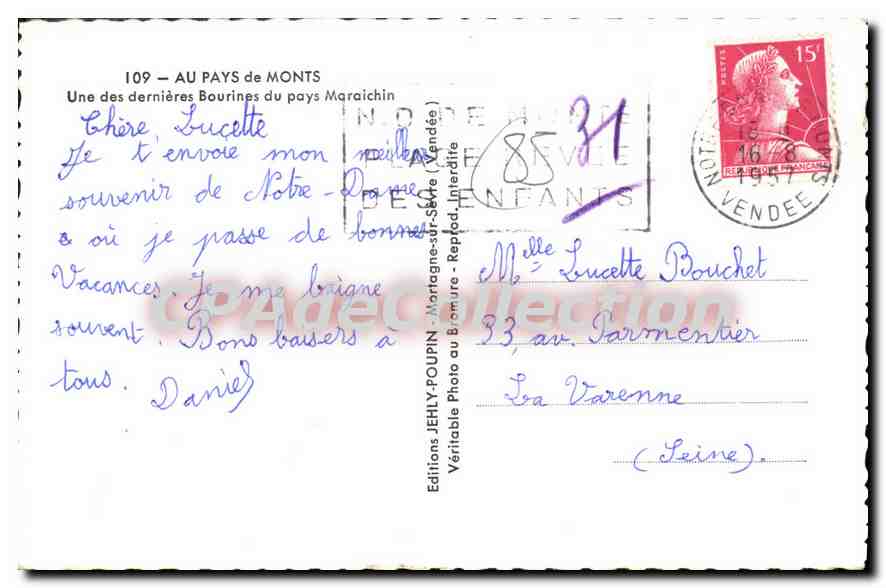 109 — AU PAYS de MONTS
Une des dernières Bourines du pays Maraichin
Chère, Lucette
Je t'envoie mon meilleur
souvenir de Notre-Dame
où je passe de bonnes
Vacances. Je me baigne
souvent. Bons baisers à
tous.
Daniel
Editions JEHLY-POUPIN - Mortagne-sur-Sèvre (Vendée)
Véritable Photo au Bromure - Reprod. Interdite
N.D. DE MONTS
PLAGE
DES ENFANTS
85
31
POSTES
15F
REPUBLIQUE FRANÇAISE
16-8
1957
VENDEE
Melle Lucette Bouchet
33, av. Parmentier
La Varenne
(Seine).
CPAdeCollection